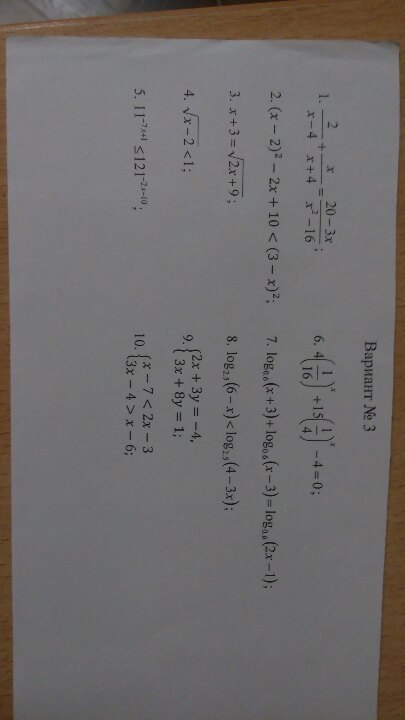 Вариант № 3
1. \frac{2}{x-4} + \frac{x}{x+4} = \frac{20-3x}{x^2-16};
2. (x − 2)² − 2x + 10 < (3 − x)²;
3. x + 3 = √(2x + 9);
4. √(x − 2) < 1;
5. 11^{−7x+1} ≤ 121^{−2x−10};
6. 4(\frac{1}{16})^x + 15(\frac{1}{4})^x − 4 = 0;
7. log_{0.6}(x + 3) + log_{0.6}(x − 3) = log_{0.6}(2x − 1);
8. log_{2.5}(6 − x) < log_{2.5}(4 − 3x);
9. { 2x + 3y = −4,
3x + 8y = 1;
10. { x − 7 < 2x − 3
3x − 4 > x − 6;